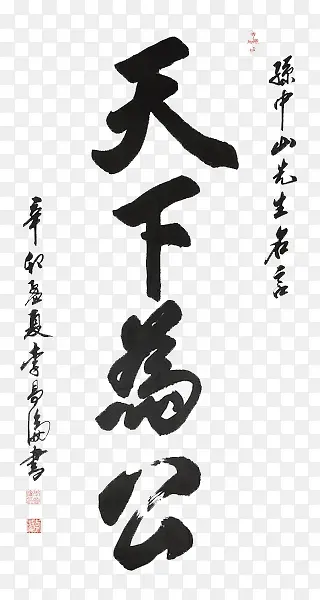 孫中山先生名言
天下為公
辛卯盛夏李昌海書